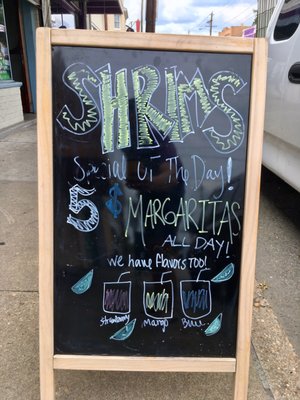 SHRIMS
Special of The Day!
5 $ MARGARITAS
ALL DAY!
we have flavors too!
strawberry Mango Blue